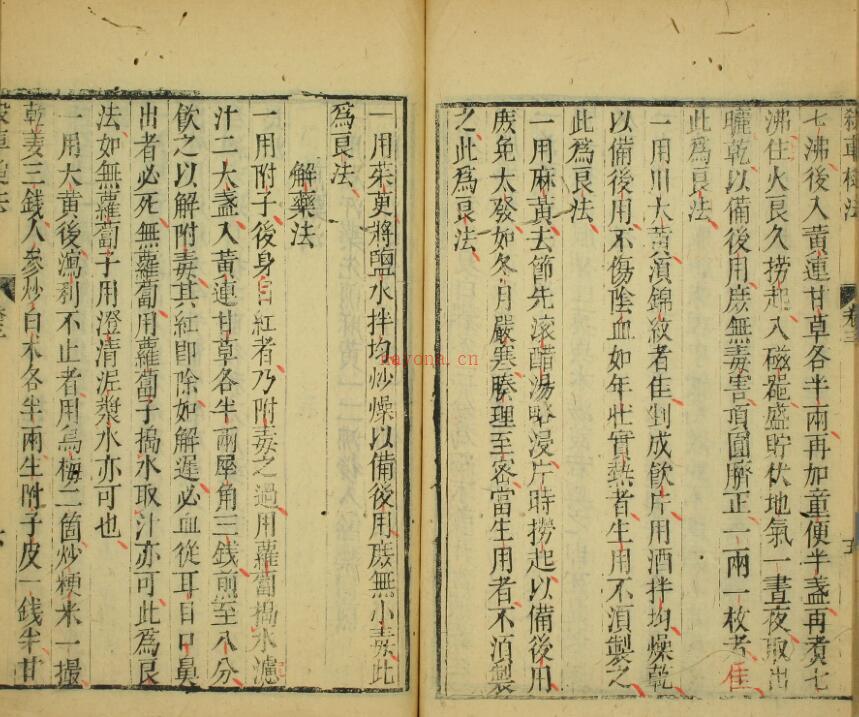 殺車槌法
卷三
五
七沸後入黃連甘草各半兩再加童便半盞再煮七
沸住火良久撈起入磁罐盛貯伏地氣一晝夜取出
曬乾以備後用庶無毒害頂圓臍正一兩一枚者佳
此爲良法
一用川大黃須錦紋者佳剉成飲片用酒拌均燥乾
以備後用不傷陰血如年壯實熱者生用不須製之
此爲良法
一用麻黃去節先滾醋湯略浸片時撈起以備後用
庶免太發如冬月嚴寒腠理至密當生用者不須製
之此爲良法
一用茱萸將鹽水拌均炒燥以備後用庶無小毒此
爲良法
解藥法
一用附子後身目紅者乃附毒之過用蘿蔔搗水濾
汁二大盞入黃連甘草各半兩犀角三錢煎至八分
飲之以解附毒其紅即除如解遲必血從耳目口鼻
出者必死無蘿蔔用蘿蔔子搗水取汁亦可此爲良
法如無蘿蔔子用澄清泥漿水亦可也
一用大黃後瀉利不止者用烏梅二箇炒粳米一撮
乾姜三錢人參炒白朮各半兩生附子皮一錢半甘
nayona.cn